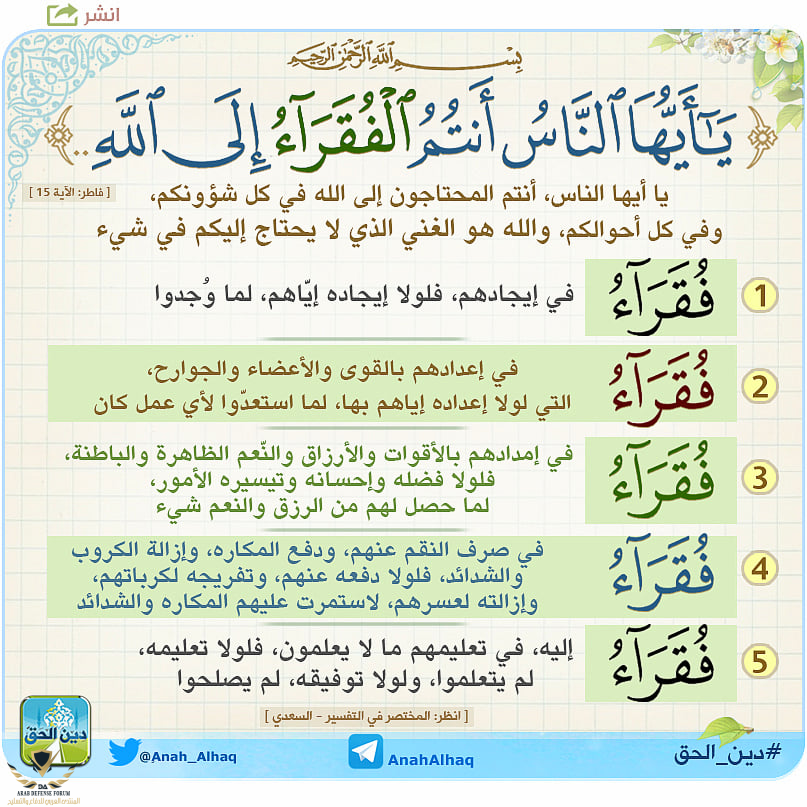 انشر
بِسْمِ اللَّهِ الرَّحْمَٰنِ الرَّحِيمِ
يَٰٓأَيُّهَا ٱلنَّاسُ أَنتُمُ ٱلْفُقَرَآءُ إِلَى ٱللَّهِ ..
[ فاطر: الآية 15 ]
يا أيها الناس، أنتم المحتاجون إلى الله في كل شؤونكم،
وفي كل أحوالكم، والله هو الغني الذي لا يحتاج إليكم في شيء
1 فُقَرَآءُ في إيجادهم، فلولا إيجاده إيّاهم، لما وُجدوا
2 فُقَرَآءُ في إعدادهم بالقوى والأعضاء والجوارح،
التي لولا إعداده إياهم بها، لما استعدّوا لأي عمل كان
3 فُقَرَآءُ في إمدادهم بالأقوات والأرزاق والنّعم الظاهرة والباطنة،
فلولا فضله وإحسانه وتيسيره الأمور،
لما حصل لهم من الرزق والنعم شيء
4 فُقَرَآءُ في صرف النقم عنهم، ودفع المكاره، وإزالة الكروب
والشدائد، فلولا دفعه عنهم، وتفريجه لكرباتهم،
وإزالته لعسرهم، لاستمرت عليهم المكاره والشدائد
5 فُقَرَآءُ إليه، في تعليمهم ما لا يعلمون، فلولا تعليمه،
لم يتعلموا، ولولا توفيقه، لم يصلحوا
[ انظر: المختصر في التفسير - السعدي ]
#دين_الحق
AnahAlhaq
@Anah_Alhaq
دين الحق
DA
ARAB DEFENSE FORUM
المنتدى العربي للدفاع والتسليح